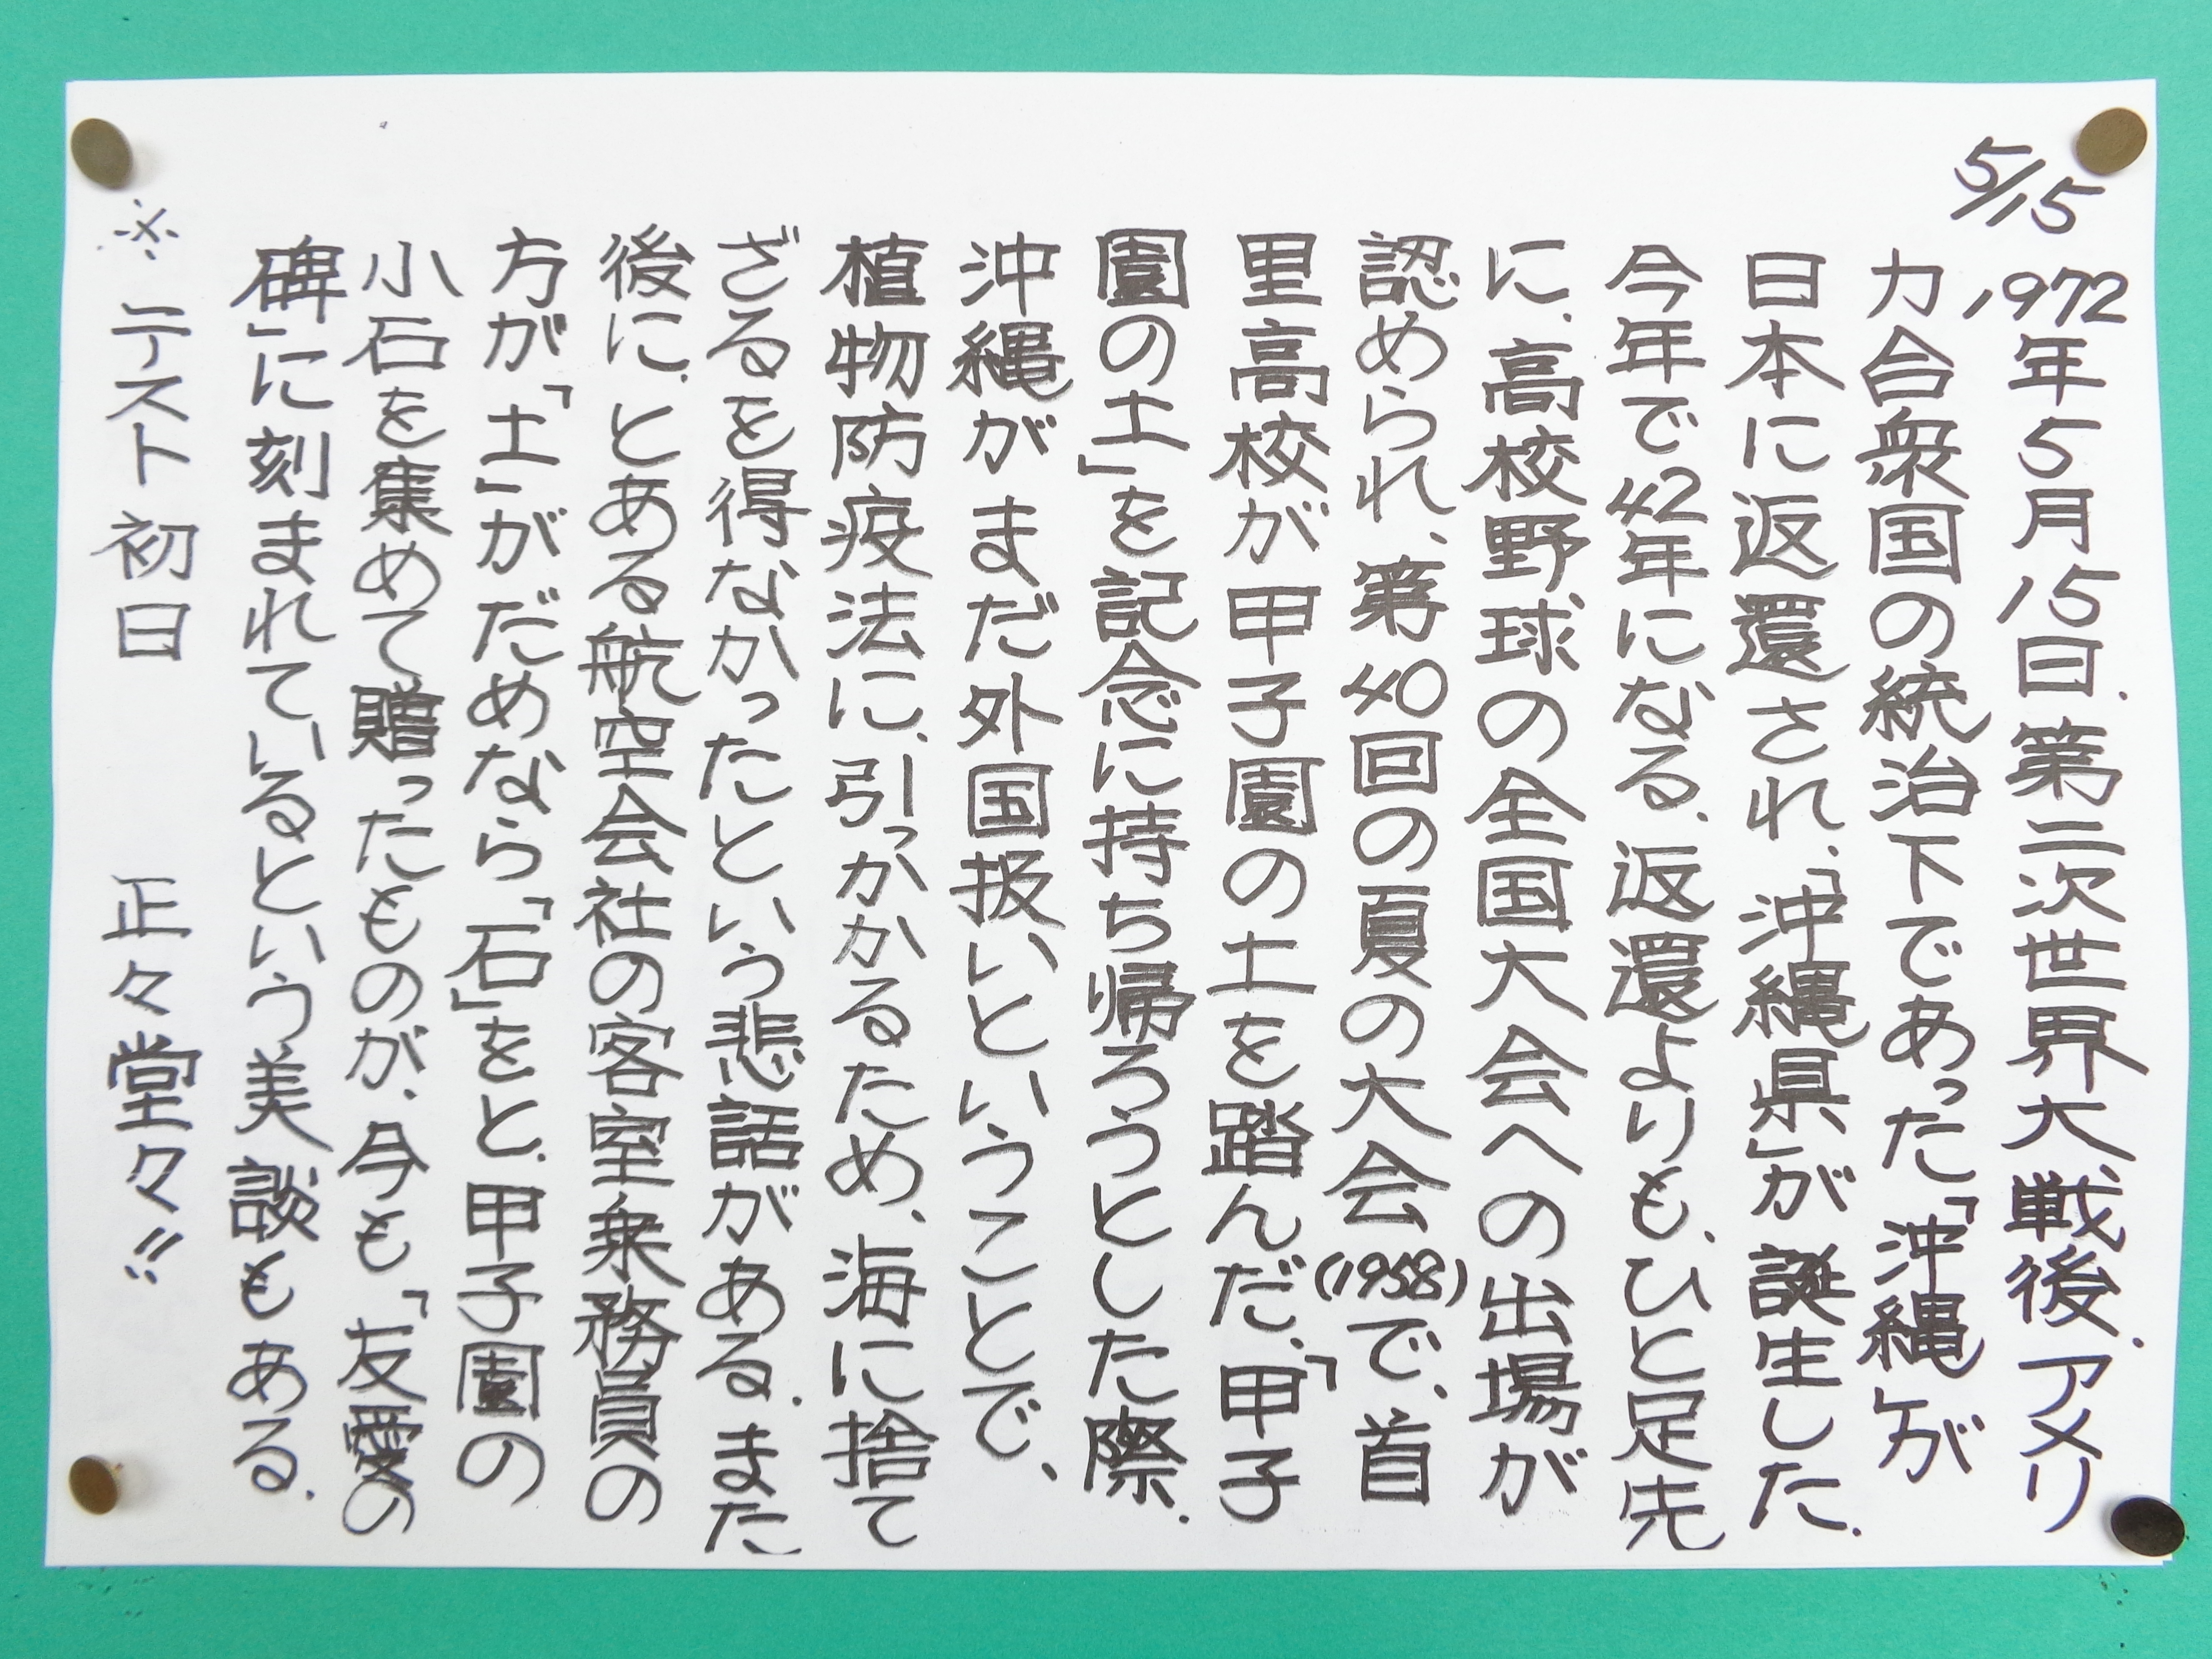 5/15
1972年5月15日、第二次世界大戦後、アメリ
カ合衆国の統治下であった「沖縄」が
日本に返還され、「沖縄県」が誕生した。
今年で42年になる。返還よりも、ひと足先
に、高校野球の全国大会への出場が
認められ、第40回の夏の大会(1958)で、首
里高校が甲子園の土を踏んだ。「甲子
園の土」を記念に持ち帰ろうとした際、
沖縄がまだ外国扱いということで、
植物防疫法に、引っかかるため、海に捨て
ざるを得なかったという悲話がある。また
後に、とある航空会社の客室乗務員の
方が「土」がだめなら「石」をと、甲子園の
小石を集めて贈ったものが、今も「友愛の
碑」に刻まれているという美談もある。
※テスト初日 正々堂々!!